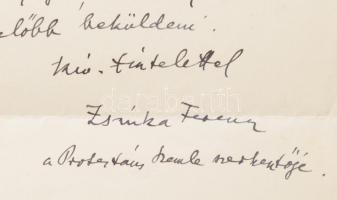 előbb beküldeni.
kiv. tisztelettel
Zsinka Ferenc
a Protestáns Szemle szerkesztője.